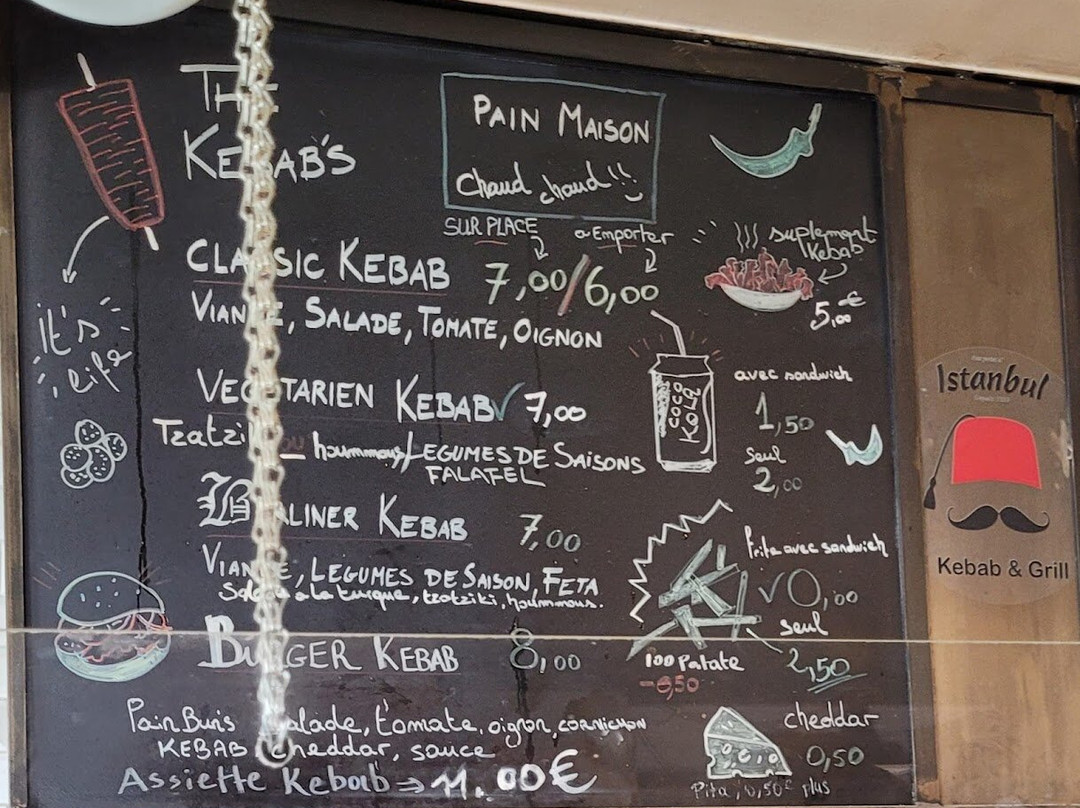 THE
KEBAB'S
PAIN MAISON
Chaud chaud!!
SUR PLACE
a Emporter
CLASSIC KEBAB 7,00/6,00
VIANDE, SALADE, TOMATE, OIGNON
suplement
Kebab
5,00€
It's
life
VEGETARIEN KEBAB 7,00
Tzatziki ou hoummous/LEGUMES DE SAISONS
FALAFEL
coco
Kola
avec sandwich
1,50
Seul
2,00
BERLINER KEBAB 7,00
VIANDE, LEGUMES DE SAISON, FETA
Salade a la turque, tzatziki, hoummous.
frite avec sandwich
0,00
seul
2,50
100 Patate
-0,50
BURGER KEBAB 8,00
Pain Bun's Salade, tomate, oignon, CORNICHON
KEBAB cheddar, sauce
Assiette Kebab ⇒ 11.00€
cheddar
0,50
Pita, 0,50€ plus
Istanbul
Kebab & Grill